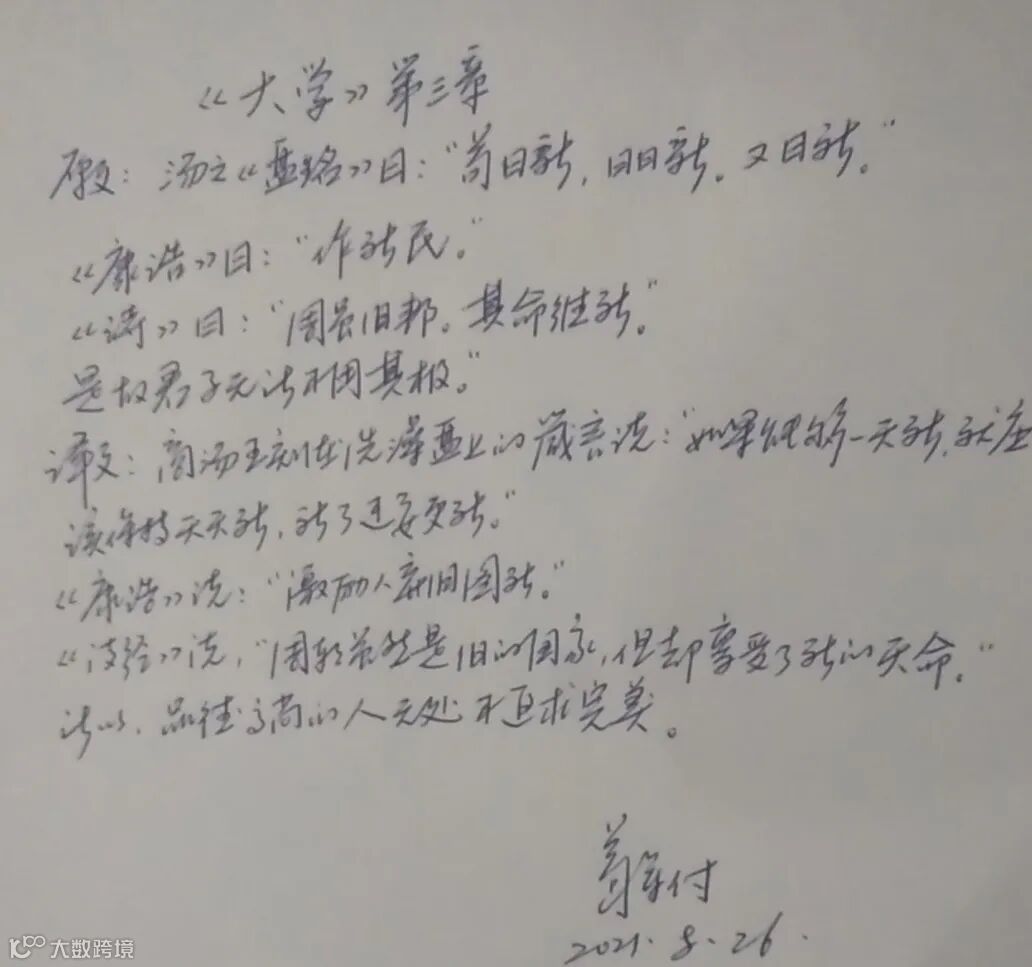 《大学》第三章
原文：汤之《盘铭》曰："苟日新，日日新。又日新。"
《康浩》曰："作新民。"
《诗》曰："周虽旧邦。其命维新。"
是故君子无所不用其极。"
译文：商汤王刻在洗澡盘上的箴言说："如果能够一天新，就应
该保持天天新，新了还要更新。"
《康浩》说："激励人弃旧图新。"
《诗经》说，"周朝虽然是旧的国家，但却享受了新的天命。"
所以，品德高尚的人无处不追求完美。
付
2021.8.26.
大数跨境